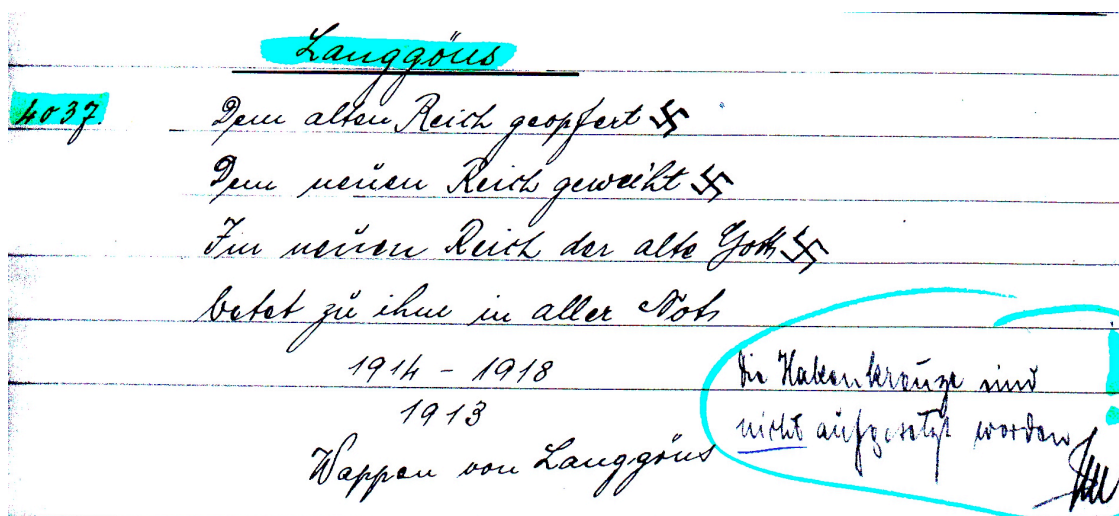 Langgöns
4037. Dem alten Reich geopfert 卐
Dem neuen Reich geweiht 卐
Im neuen Reich der alte Gott 卐
betet zu ihm in aller Not
1914 - 1918
1913
Wappen von Langgöns
die Hakenkreuze sind
nicht aufgesetzt worden!